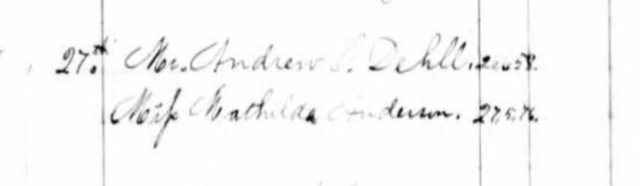 27.th Mr. Andrew S. Dehll.
Miss Mathilda Anderson. 27.5.76.